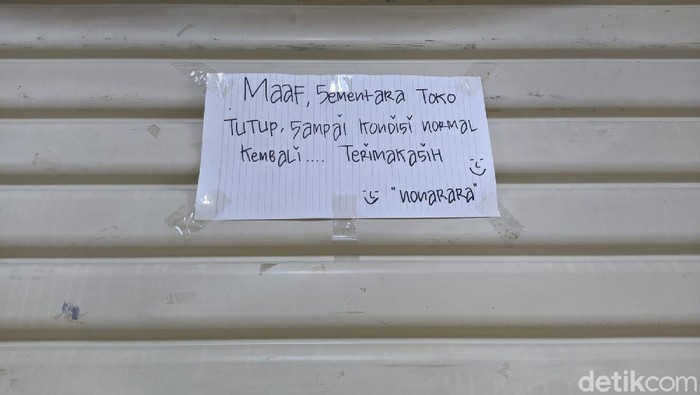 Maaf, Sementara Toko
Tutup, Sampai kondisi normal
kembali.... Terimakasih
"nonarara"
detikcom